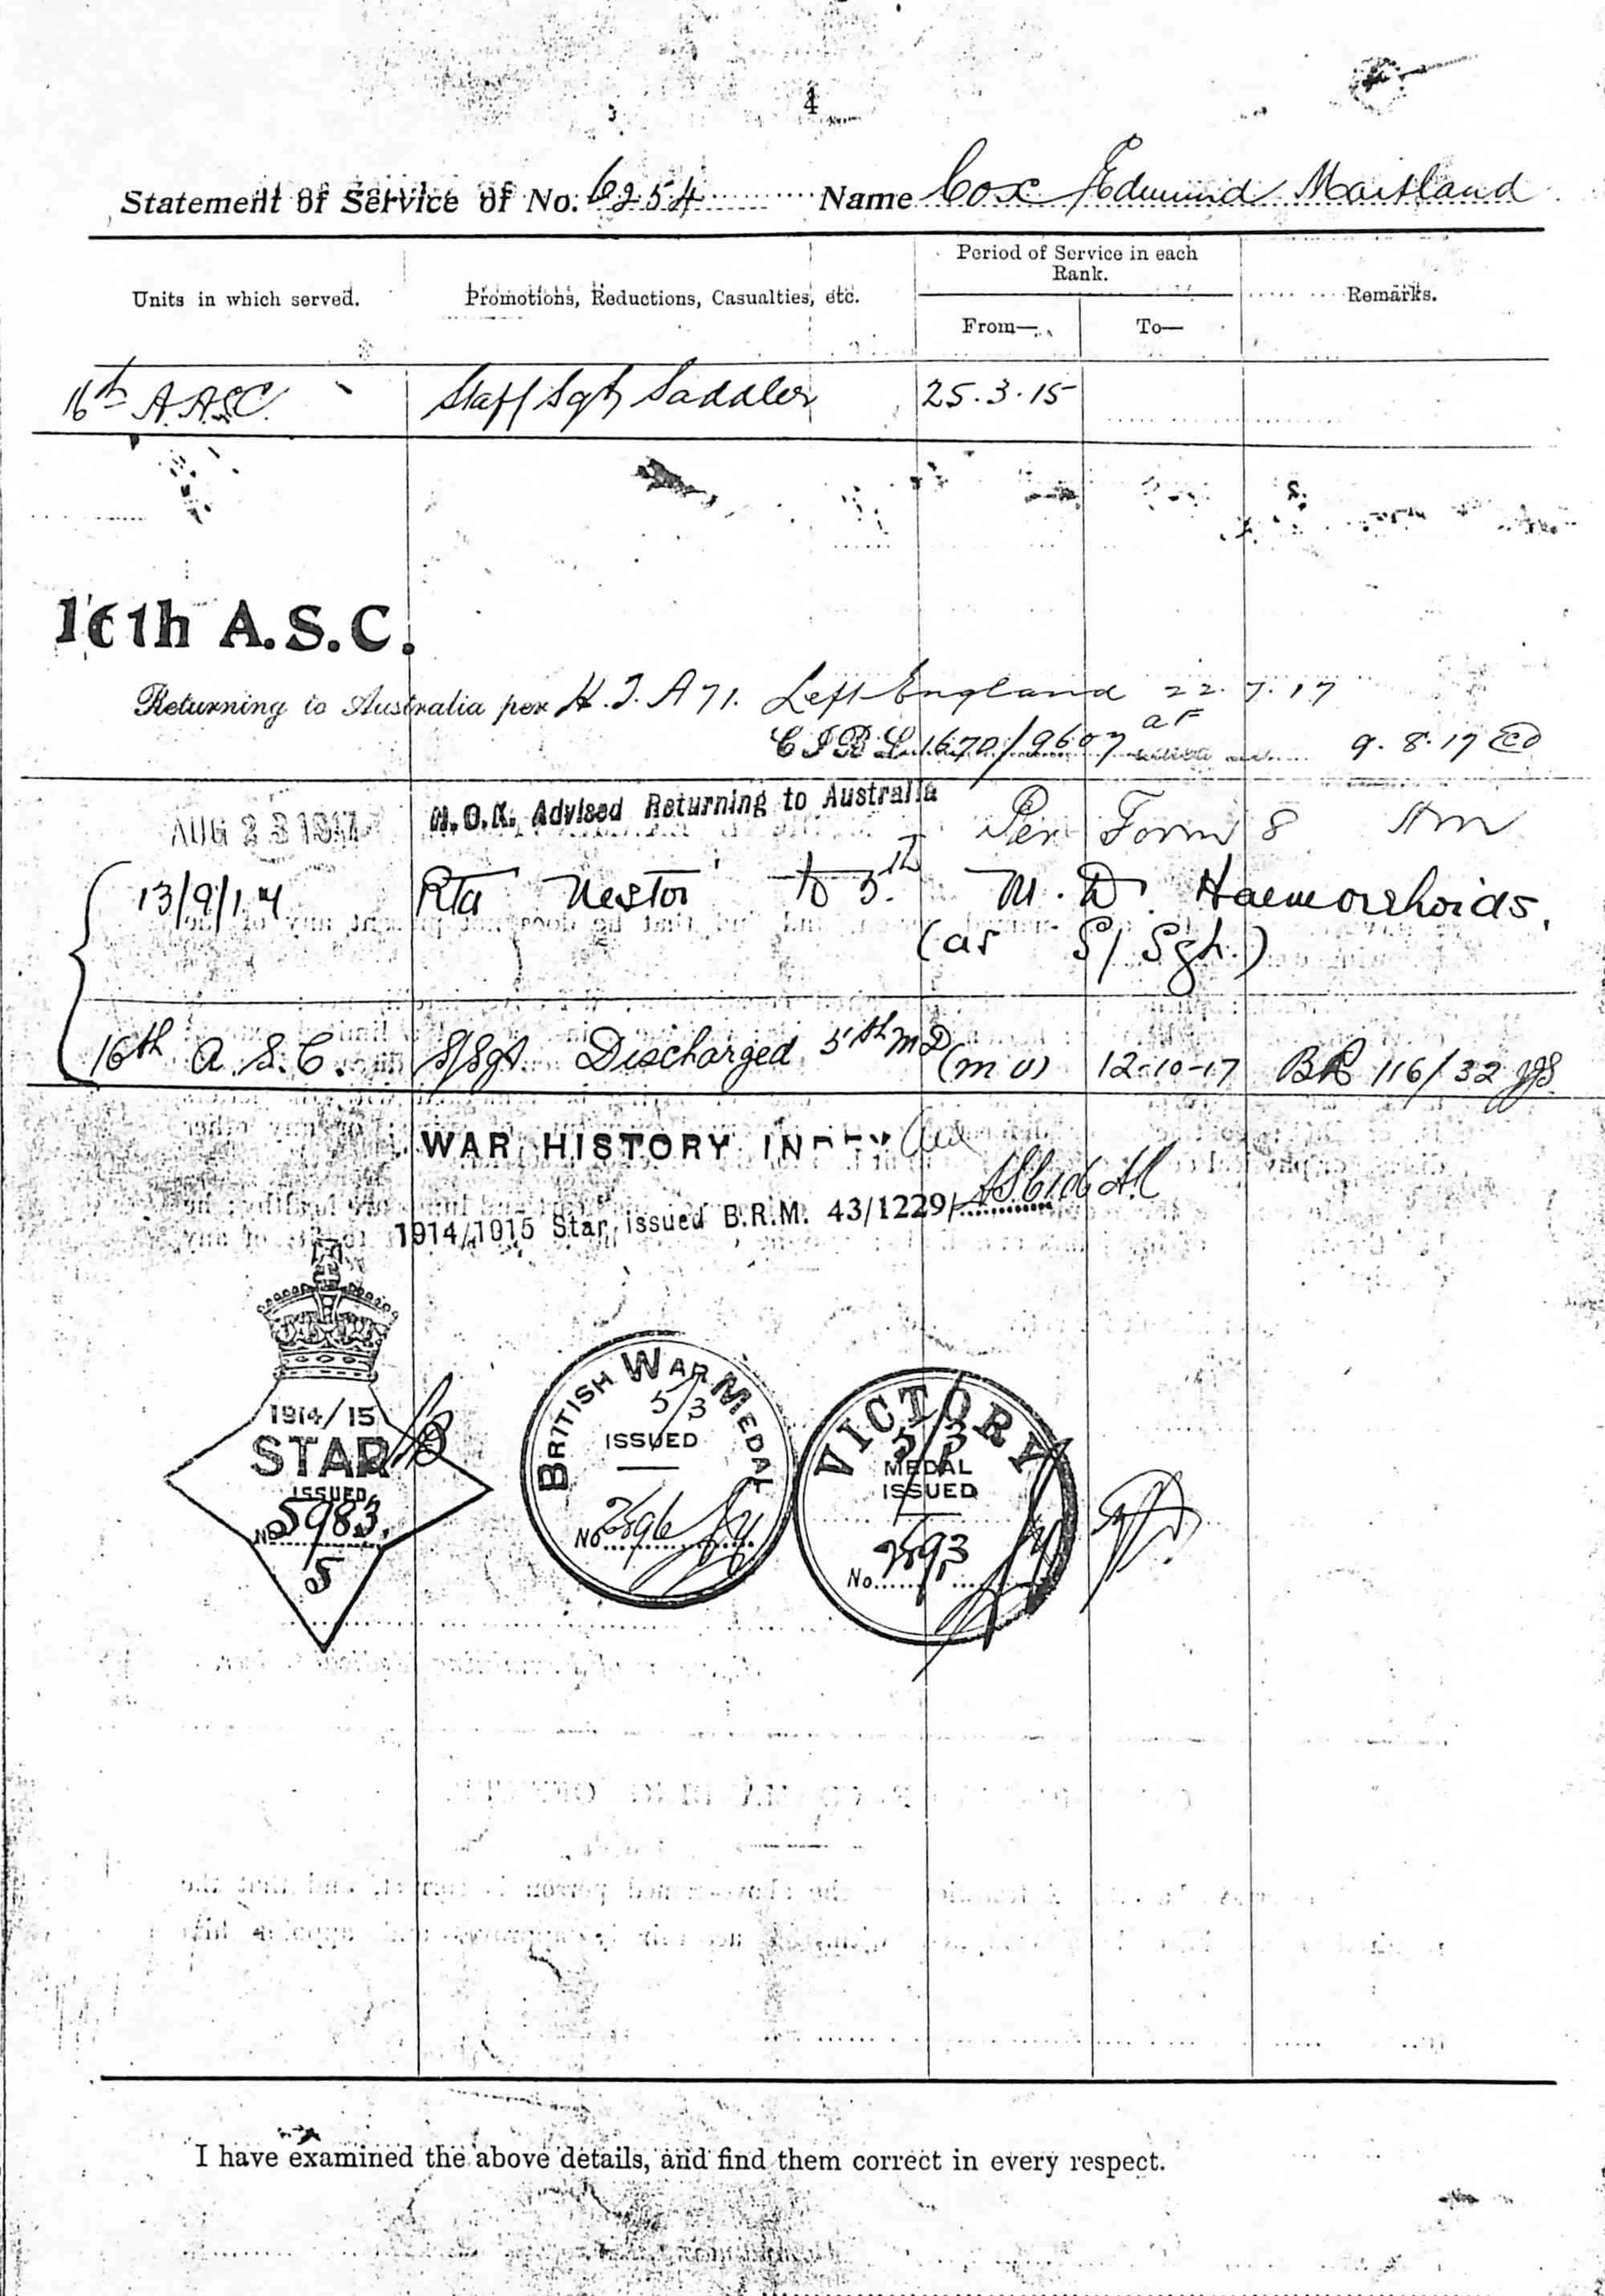 4
Statement of Service of No. 6254 Name Cox Edmund Maitland
Units in which served. Promotions, Reductions, Casualties, etc. Period of Service in each Rank. Remarks.
From— To—
16th A.A.S.C. Staff Sgt Saddler 25.3.15
16th A.S.C.
Returning to Australia per H.T. A71. Left England 22.7.17
1670/9607 9.8.17
AUG 23 1917 N.O.K. Advised Returning to Australia Per Form 8
13/9/17 RTA Nestor to 5th M.D. Haemorrhoids.
(as S/Sgt.)
16th A.S.C. S/Sgt. Discharged 5th MD (MU) 12-10-17 BR 116/32
WAR HISTORY INDEX
1914/1915 Star issued B.R.M. 43/1229/
1914/15
STAR
ISSUED
No 5983
5
BRITISH WAR MEDAL
5/3
ISSUED
No 2596
VICTORY
5/3
MEDAL
ISSUED
No 2593
I have examined the above details, and find them correct in every respect.